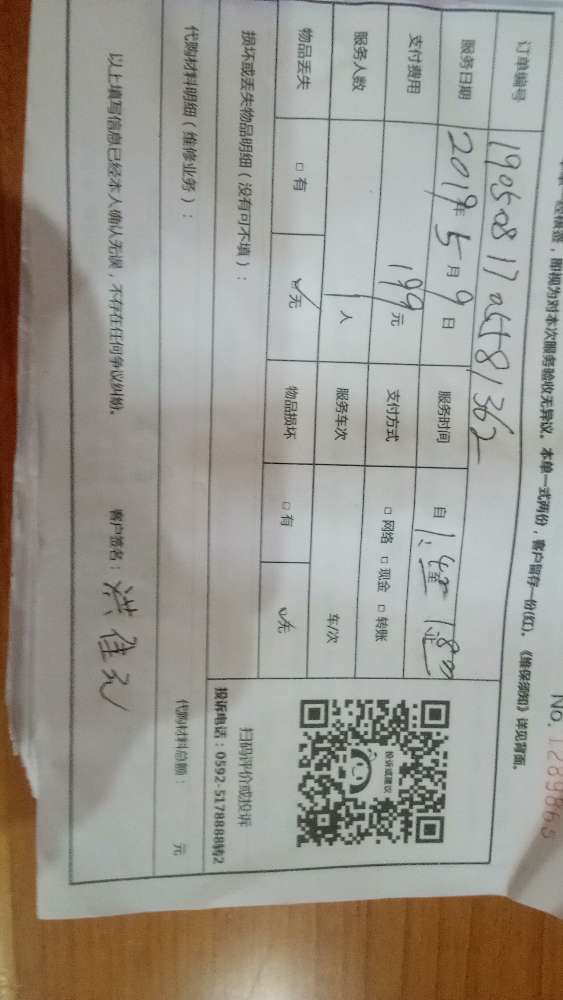 No. 1289863
经核签，即视为对本次服务验收无异议。本单一式两份，客户留存一份(红)。《维保须知》详见背面。
订单编号
服务日期 2019年 5月 9日 服务时间 自
支付费用 199元 支付方式 □ 网络 □ 现金 □ 转账
服务人数 1人 服务车次 车/次
物品丢失 □ 有 ☑无 物品损坏 □ 有 ☑无
投诉或建议
扫码评价或投诉
投诉电话：0592-5178888转2
损坏或丢失物品明细（没有可不填）：
代购材料明细（维修业务）： 代购材料总额： 元
以上填写信息已经本人确认无误，不存在任何争议纠纷。 客户签名：洪佳元